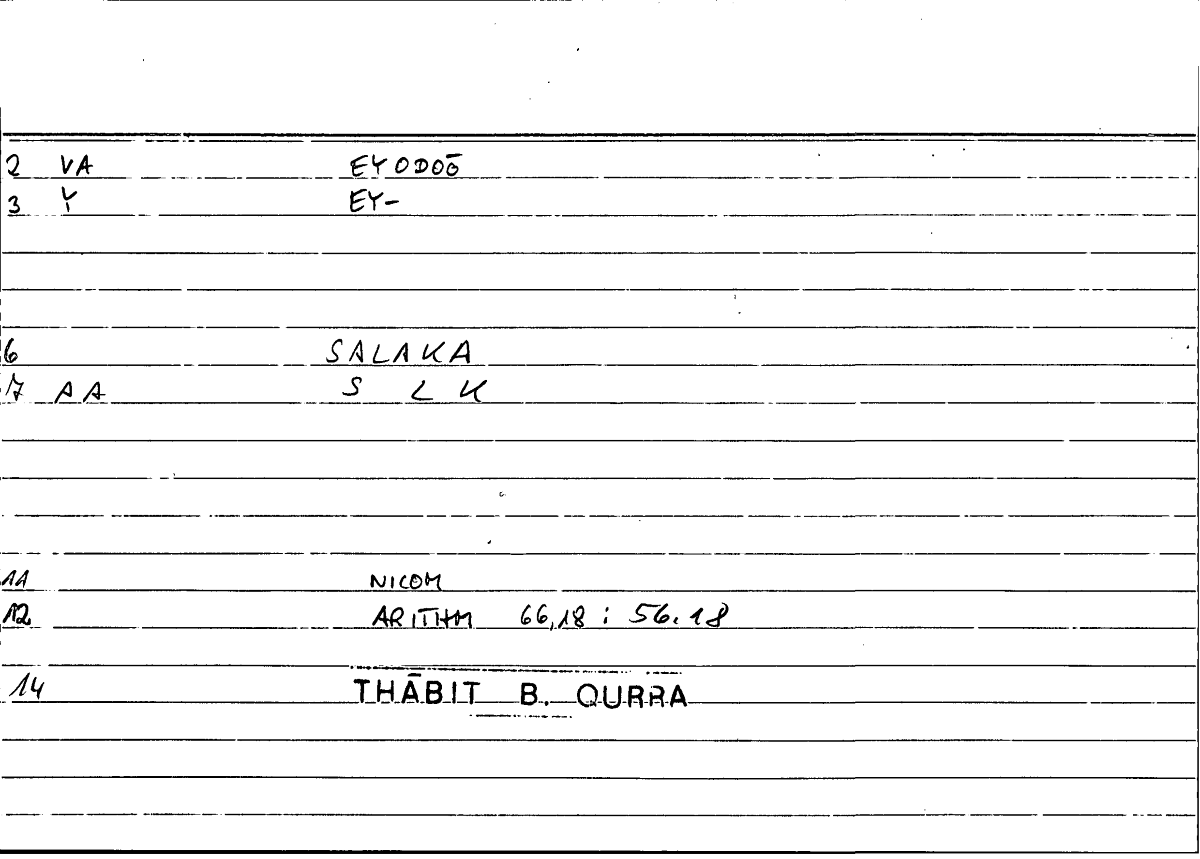 2 VA EYODOŌ
3 Y EY-
6 SALAKA
7 AA S L K
11 NICOM
12 ARITHM 66,18 : 56.18
14 THĀBIT B. QURRA